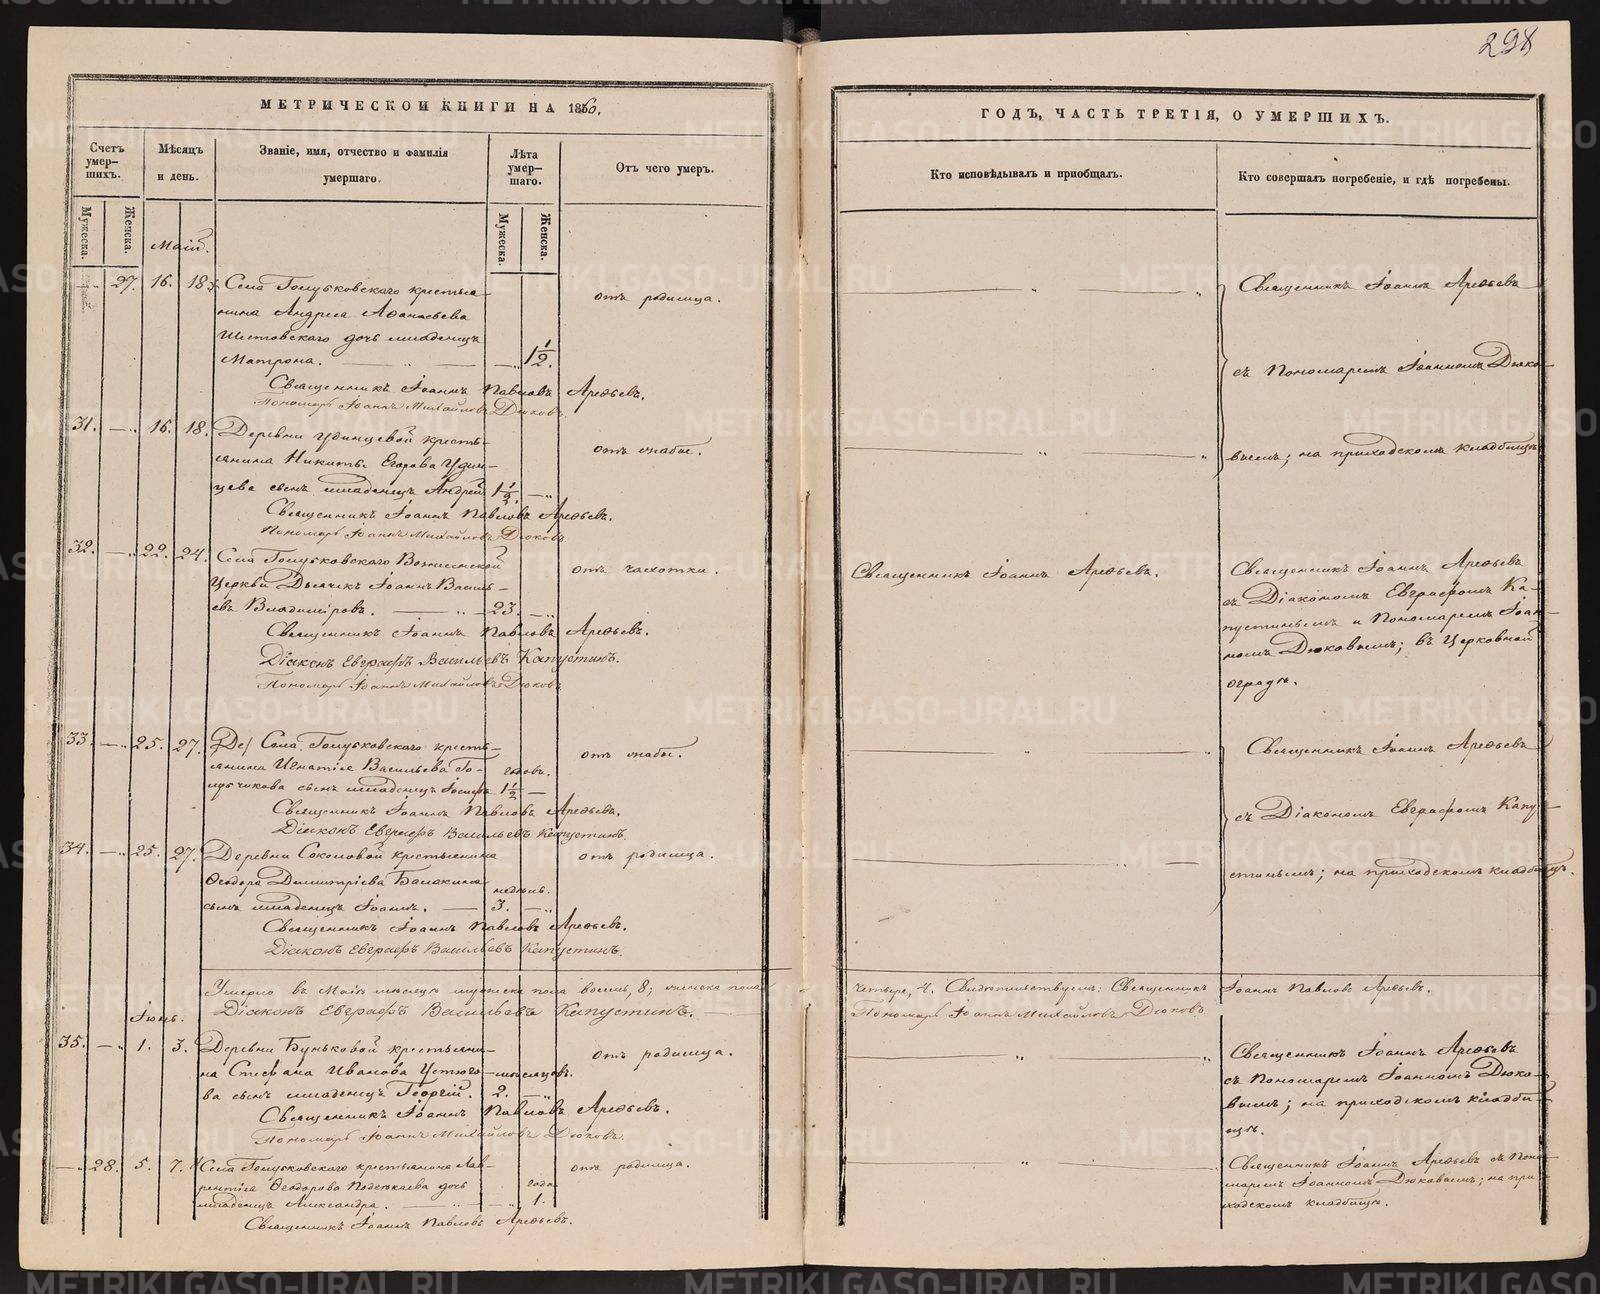 298
МЕТРИЧЕСКОЙ КНИГИ НА 1860.
ГОДЪ, ЧАСТЬ ТРЕТІЯ, О УМЕРШИХЪ.
Счетъ умер-шихъ.
Мѣсяцъ и день.
Званіе, имя, отчество и фамилія умершаго.
Лѣта умер-шаго.
Отъ чего умеръ.
Кто исповѣдывалъ и приобщалъ.
Кто совершалъ погребеніе, и гдѣ погребены.
Мужеска.
Женска.
Мужеска.
Женска.
Маій.
27. 16. 18. Села Голубковскаго крестья-
нина Андрея Аѳанасьева
дочь младенецъ
Матрона. 1 1/2.
отъ родимца.
Священникъ Іоаннъ Павловъ Арефьевъ.
Пономарь Іоаннъ Михайловъ Дюковъ.
Священникъ Іоаннъ Арефьевъ
съ Пономаремъ Іоанномъ Дюко-
вымъ; на приходскомъ кладбищѣ
31. 16. 18. Деревни Удинцевой кресть-
янина Никиты Егорова Удин-
цева сынъ младенецъ Андрей 1 1/2.
отъ слабос.
Священникъ Іоаннъ Павловъ Арефьевъ.
Пономарь Іоаннъ Михайловъ Дюковъ
32. 22. 24. Села Голубковскаго Вознесенской
Церкви Дьячикъ Іоаннъ Василь-
евъ Владиміровъ. 23.
отъ чахотки.
Священникъ Іоаннъ Павловъ Арефьевъ.
Діаконъ Евграфъ Васильевъ Капустинъ.
Пономарь Іоаннъ Михайловъ Дюковъ
Священникъ Іоаннъ Арефьевъ.
Священникъ Іоаннъ Арефьевъ
съ Діакономъ Евграфомъ Ка-
пустинымъ и Пономаремъ Іоан-
номъ Дюковымъ; въ Церковной
оградѣ.
33. 25. 27. Села Голубковскаго кресть-
янина Игнатія Васильева Го-
лубчикова сынъ младенецъ Іосифъ 1 1/2
отъ слабос.
Священникъ Іоаннъ Павловъ Арефьевъ.
Діаконъ Евграфъ Васильевъ Капустинъ.
Священникъ Іоаннъ Арефьевъ
съ Діакономъ Евграфомъ Капу-
стинымъ; на приходскомъ кладбищѣ.
34. 25. 27. Деревни Соколовой крестьянина
Ѳеодора Димитріева Балакина недѣль.
сынъ младенецъ Іоаннъ. 3.
отъ родимца.
Священникъ Іоаннъ Павловъ Арефьевъ.
Діаконъ Евграфъ Васильевъ Капустинъ.
Умерло въ Маіѣ мѣсяцѣ мужеска пола восемь, 8; женска пола
четыре, 4. Свидѣтельствуемъ: Священникъ Іоаннъ Павловъ Арефьевъ.
Діаконъ Евграфъ Васильевъ Капустинъ.
Пономарь Іоаннъ Михайловъ Дюковъ
Іюнь.
35. 1. 3. Деревни Буньковой крестьяни-
на Стефана Иванова Устюго- мѣсяцовъ.
ва сынъ младенецъ Георгій. 2.
отъ родимца.
Священникъ Іоаннъ Павловъ Арефьевъ.
Пономарь Іоаннъ Михайловъ Дюковъ.
Священникъ Іоаннъ Арефьевъ
съ Пономаремъ Іоанномъ Дюко-
вымъ; на приходскомъ кладби-
щѣ.
28. 5. 7. Села Голубковскаго крестьянина Лав-
рентія Ѳеодорова дочь года
младенецъ Александра. 1.
отъ родимца.
Священникъ Іоаннъ Павловъ Арефьевъ.
Священникъ Іоаннъ Арефьевъ съ Поно-
маремъ Іоанномъ Дюковымъ; на при-
ходскомъ кладбищѣ.
METRIKI.GASO-URAL.RU